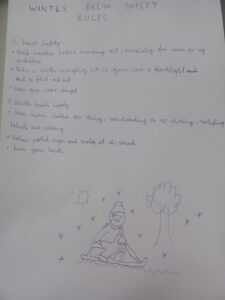 WINTER BREAK SAFETY
RULES
1. Travel Safety
• Check weather before heading out, especially for snow or icy
conditions
• Take a winter emergency kit in your car: a flashlight and
and a first-aid kit
• Keep your phone charged
2. Winter Sport Safety
• Wear warm clothes for skiing, snowboarding or ice skating, including
helmets and
• Follow posted signs and rules at ski
• Know your limits